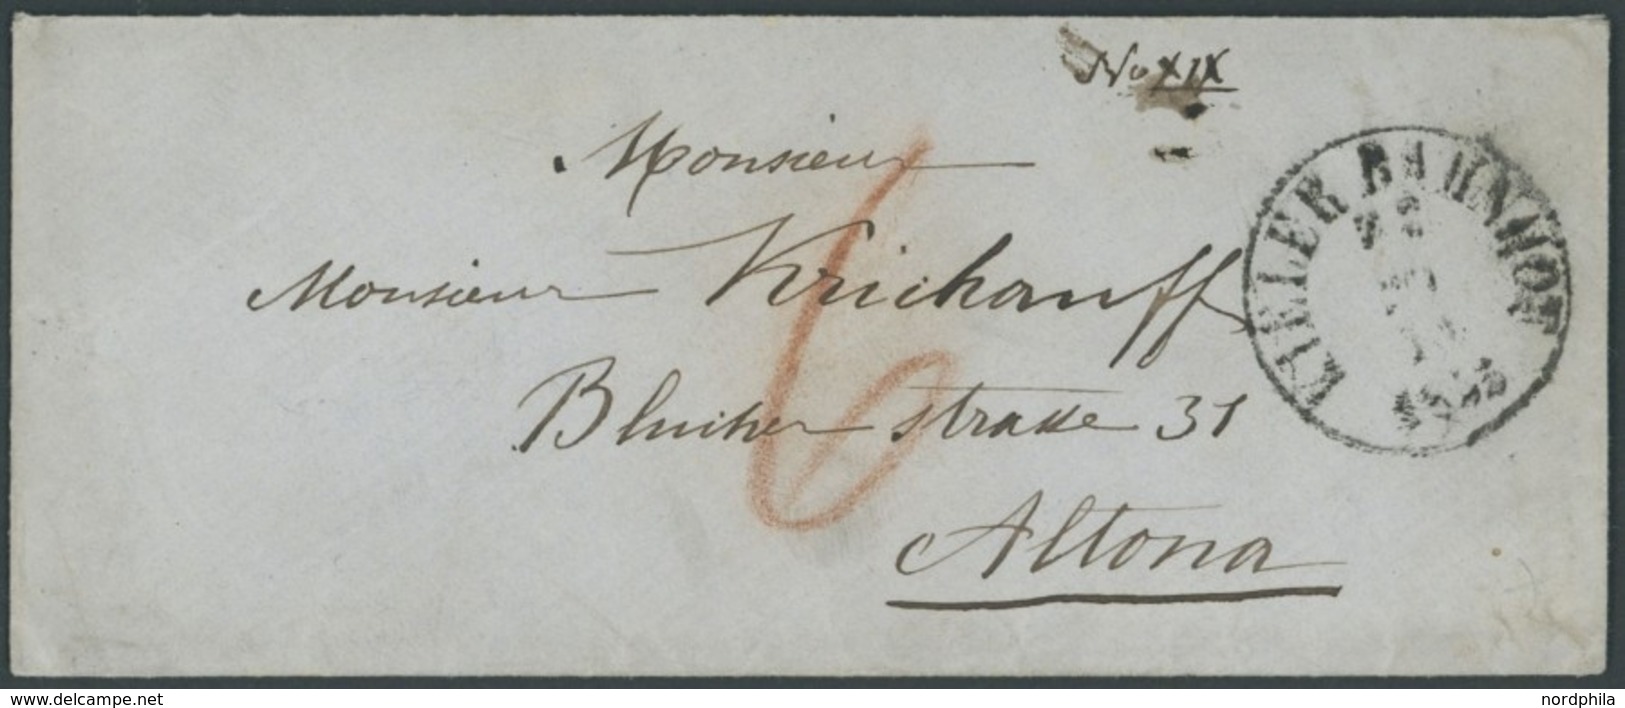 No XIX
Monsieur
Monsieur Krichauff
Blücher strasse 31
Altona
6
KIELER BAHNHOF
delcampe.net
nordphila